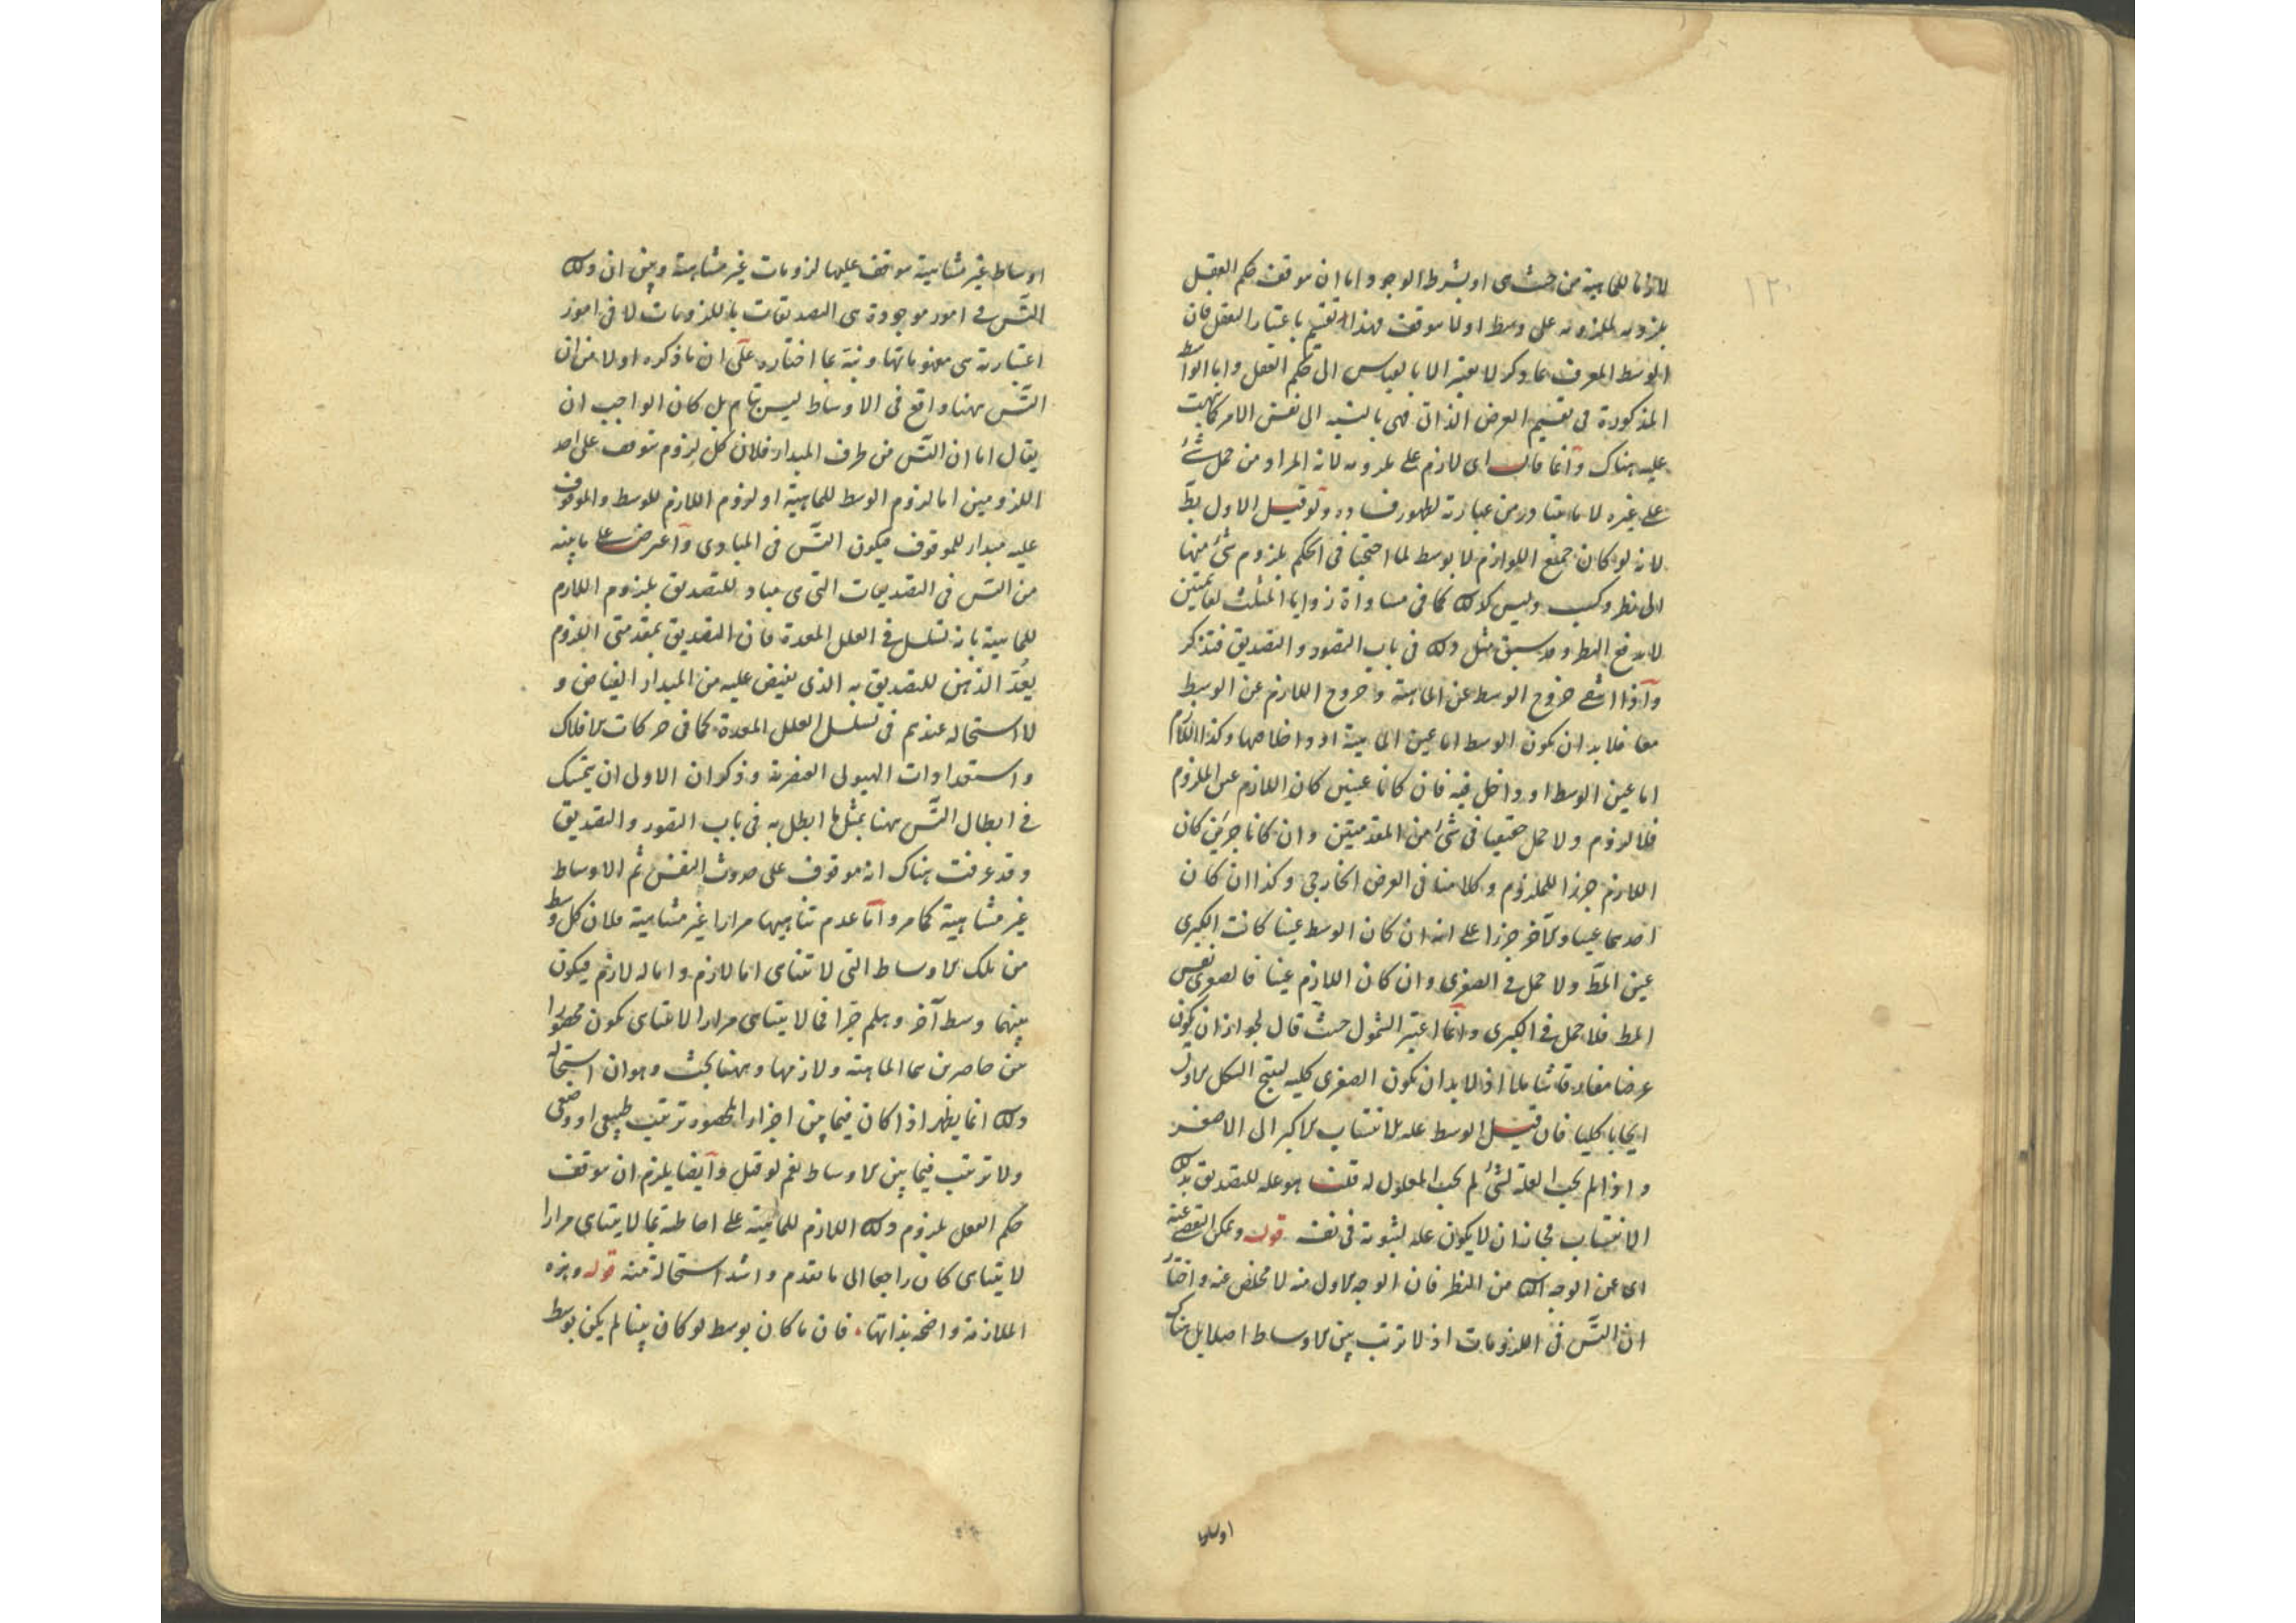 ١٢٠
لازما للماهية من حيث هى او بشرط الوجود اما ان يتوقف حكم العقل
بلزومه للملزومه على وسط او لا يتوقف فهذا تقسيم باعتبار العقل فان
الوسط المعرف بما ذكر لا يعتبر الا بالقياس الى حكم العقل واما الوسائط
المذكورة فى تقسيم العرض الذاتى فهى بالنسبة الى نفس الامر كما نبهت
عليه هناك وانما قال اى لازم على ملزومه لانه المراد من حمل شئ
على غيره لا ما يتبادر من عبارته لظهور فساده وقيل الاول بط
لانه لو كان جميع اللوازم لا بوسط لما احتجنا فى الحكم بلزوم شئ منها
الى نظر وكسب وليس كذلك كما فى مساواة زوايا المثلث لقائمتين
لاندفع النظر وقد سبق مثل ذلك فى باب التصور والتصديق فتذكر
واذا انتفى خروج الوسط عن الماهية وخروج اللازم عن الوسط
معا فلا بد ان يكون الوسط اما عين الماهية او داخلا فيها وكذا اللازم
اما عين الوسط او داخل فيه فان كانا عينين كان اللازم عين الملزوم
فلا لزوم ولا حمل حقيقيا فى شئ من المقدمتين وان كانا جزئين كان
اللازم جزءا للملزوم وكلامنا فى العرض الخارجى وكذا ان كان
احدهما عينا والآخر جزءا على انه ان كان الوسط عينا كانت الكبرى
عين المط ولا حمل فى الصغرى وان كان اللازم عينا فالصغرى نفس
المط فلا حمل فى الكبرى وانما اعتبر الشمول حيث قال لجواز ان يكون
عرضا مفارقا شاملا اذ لا بد ان يكون الصغرى كلية لينتج الشكل الاول
ايجابا كليا فان قيل الوسط علة لانتساب الاكبر الى الاصغر
واذا لم يجب العلة لشئ لم يجب المعلول له قلنا هو علة للتصديق بذلك
الانتساب فجاز ان لا يكون علة لثبوته فى نفسه قوله ويمكن التفصى عنه
اى عن الوجه الثانى من النظر فان الوجه الاول منه لا مخلص عنه واختار
ان التس فى اللزومات اذ لا ترتب بين الاوساط اصلا بل هناك
اوساط
اوساط غير متناهية يتوقف عليها لزومات غير متناهية وبين ان ذلك
التس فى امور موجودة هى التصديقات باللزومات لا فى امور
اعتبارية هى مفهوماتها ونبه بما اختاره على ان ما ذكره اولا من ان
التس ههنا واقع فى الاوساط ليس بتام بل كان الواجب ان
يقال اما ان التس من طرف المبدأ فلان كل لزوم يتوقف على احد
اللزومين اما لزوم الوسط للماهية او لزوم اللازم للوسط والموقوف
عليه مبدأ للموقوف فيكون التس فى المبادى واعترض على ما بينه
من التس فى التصديقات التى هى مباد للتصديق بلزوم اللازم
للماهية بانه تسلسل فى العلل المعدة فان التصديق بمقدمتى اللزوم
يعد الذهن للتصديق به الذى يفيض عليه من المبدأ الفياض و
لا استحالة عندهم فى تسلسل العلل المعدة كما فى حركات الافلاك
واستعدادات الهيولى العنصرية وذكر ان الاولى ان يتمسك
فى ابطال التس ههنا بمثل ما ابطل به فى باب التصور والتصديق
وقد عرفت هناك انه موقوف على حدوث النفس ثم الاوساط
غير متناهية كما مر واما عدم تناهيها مرارا غير متناهية فلان كل وسط
من تلك الاوساط التى لا تتناهى اما لازم واما له لازم فيكون
بينهما وسط آخر وهلم جرا فما لا يتناهى مرارا لا تتناهى يكون محصورا
بين حاصرين هما الماهية ولازمها وههنا بحث وهو ان استحالة
ذلك انما يظهر اذا كان فيما بين اجزاء المحصور ترتب طبيعى او وضعى
ولا ترتب فيما بين الاوساط نعم لو قيل وايضا يلزم ان يتوقف
حكم العقل بلزوم ذلك اللازم للماهية على احاطته بما لا يتناهى مرارا
لا يتناهى كان راجعا الى ما تقدم واشد استحالة منه قوله وهذه
الملازمة واضحة بذاتها. فان ما كان بوسط لو كان بينا لم يكن بوسط